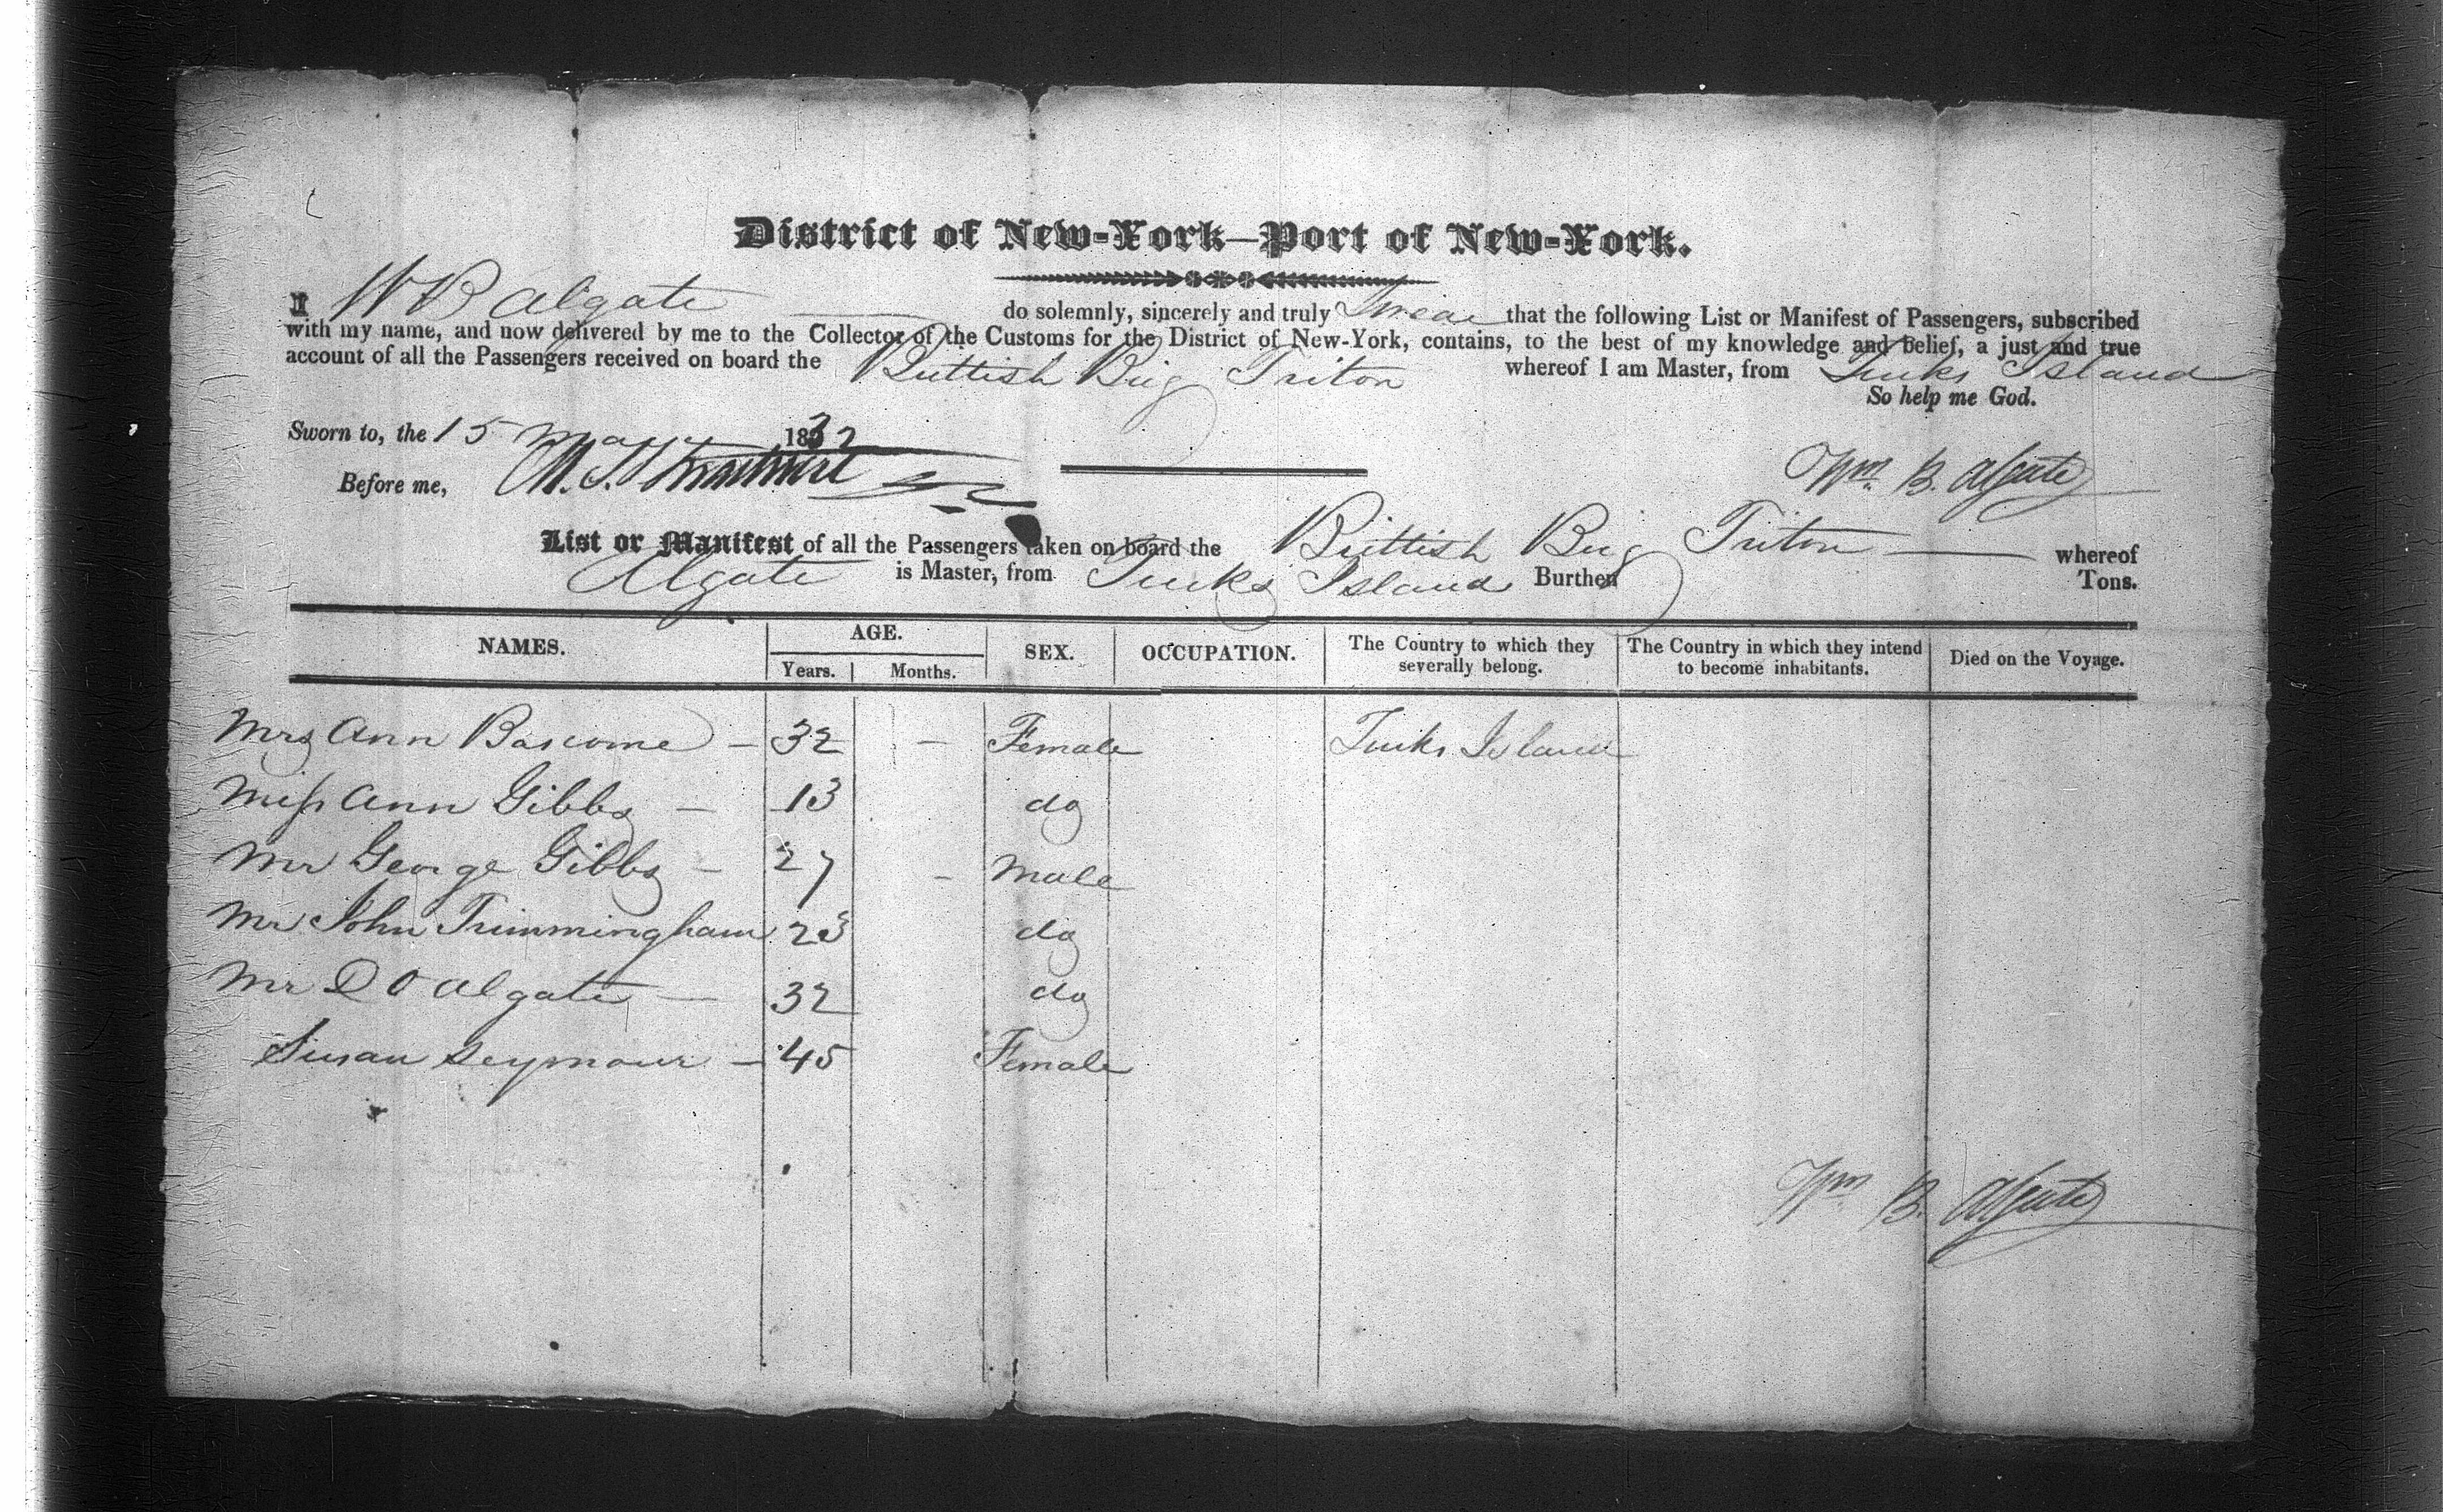 District of New-York—Port of New-York.
I W B Algate do solemnly, sincerely and truly Swear that the following List or Manifest of Passengers, subscribed
with my name, and now delivered by me to the Collector of the Customs for the District of New-York, contains, to the best of my knowledge and belief, a just and true
account of all the Passengers received on board the Brittish Brig Triton whereof I am Master, from Turks Island
So help me God.
Sworn to, the 15 May 1832
Before me,
Wm. B. Algate
List or Manifest of all the Passengers taken on board the Brittish Brig Triton — whereof
Algate is Master, from Turks Island Burthen Tons.
NAMES. AGE. SEX. OCCUPATION. The Country to which they severally belong. The Country in which they intend to become inhabitants. Died on the Voyage.
Years. Months.
Mrs Ann Bascome — 32 — Female Turks Island
Miss Ann Gibbs — 13 do
Mr George Gibbs — 27 — Male
Mr John Trimmingham 23 do
Mr D O Algate — 32 do
Susan Seymour — 45 Female
Wm. B. Algate